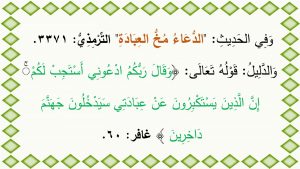 وَفِي الحَدِيثِ: "الدُّعَاءُ مُخُّ العِبَادَةِ" التِّرْمِذِيُّ: ٣٣٧١.
وَالدَّلِيلُ: قَوْلُهُ تَعَالَى: ﴿وَقَالَ رَبُّكُمُ ادْعُونِي أَسْتَجِبْ لَكُمْ ۚ
إِنَّ الَّذِينَ يَسْتَكْبِرُونَ عَنْ عِبَادَتِي سَيَدْخُلُونَ جَهَنَّمَ
دَاخِرِينَ ﴾ غافر: ٦٠.